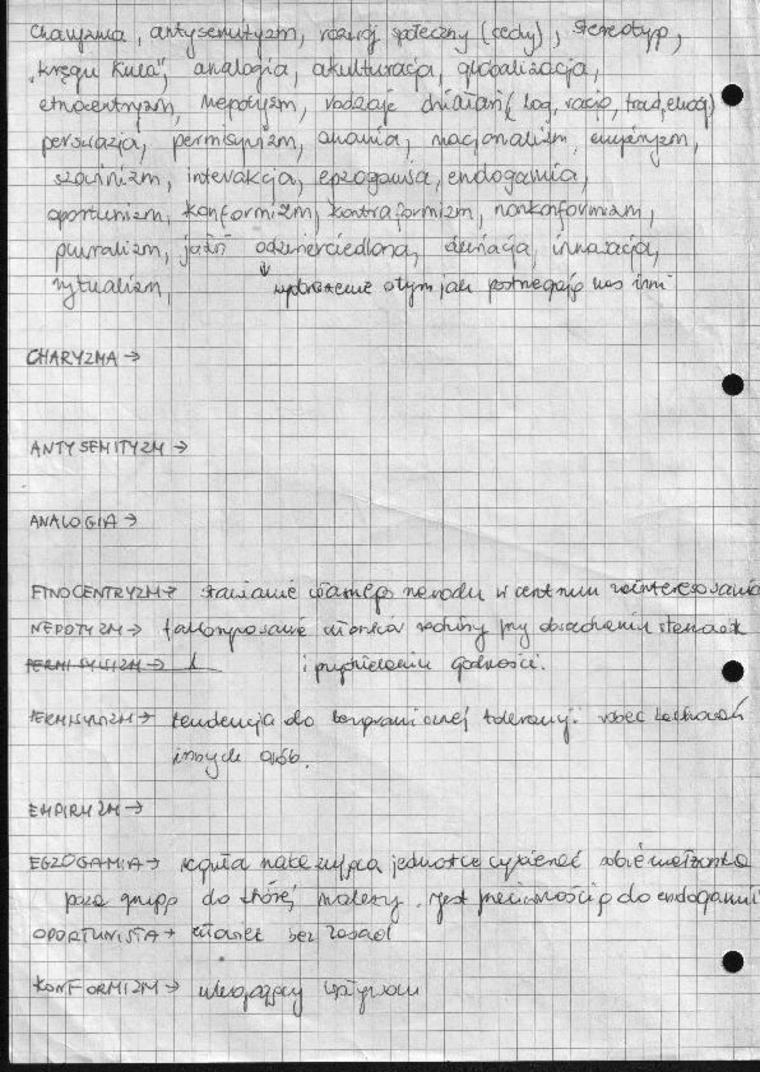 charyzma, antysemityzm, rozwój społeczny (cechy), stereotyp,
„kręgu Kula”, analogia, akulturacja, globalizacja,
etnocentryzm, nepotyzm, rodzaje działań (log, racjo, trad, emocj)
perswazja, permisywizm, anomia, nacjonalizm, empiryzm,
szowinizm, interakcja, egzogamia, endogamia,
oportunizm, konformizm, kontraformizm, nonkonformizm,
pluralizm, jaźń odzwierciedlona, dewiacja, innowacja,
rytualizm, ↓ wyobrażenie o tym jak postrzegają nas inni
CHARYZMA →
ANTYSEMITYZM →
ANALOGIA →
ETNOCENTRYZM → stawianie własnego narodu w centrum zainteresowania
NEPOTYZM → faworyzowanie członków rodziny przy obsadzaniu stanowisk
PERMISYWIZM → i przydzielaniu godności.
PERMISYWIZM → tendencja do bezgranicznej tolerancji wobec zachowań
innych osób.
EMPIRYZM →
EGZOGAMIA → reguła nakazująca jednostce wybierać sobie małżonka
poza grupą do której należy. jest przeciwnością do endogamii
OPORTUNISTA → człowiek bez zasad
KONFORMIZM → ulegający wpływom